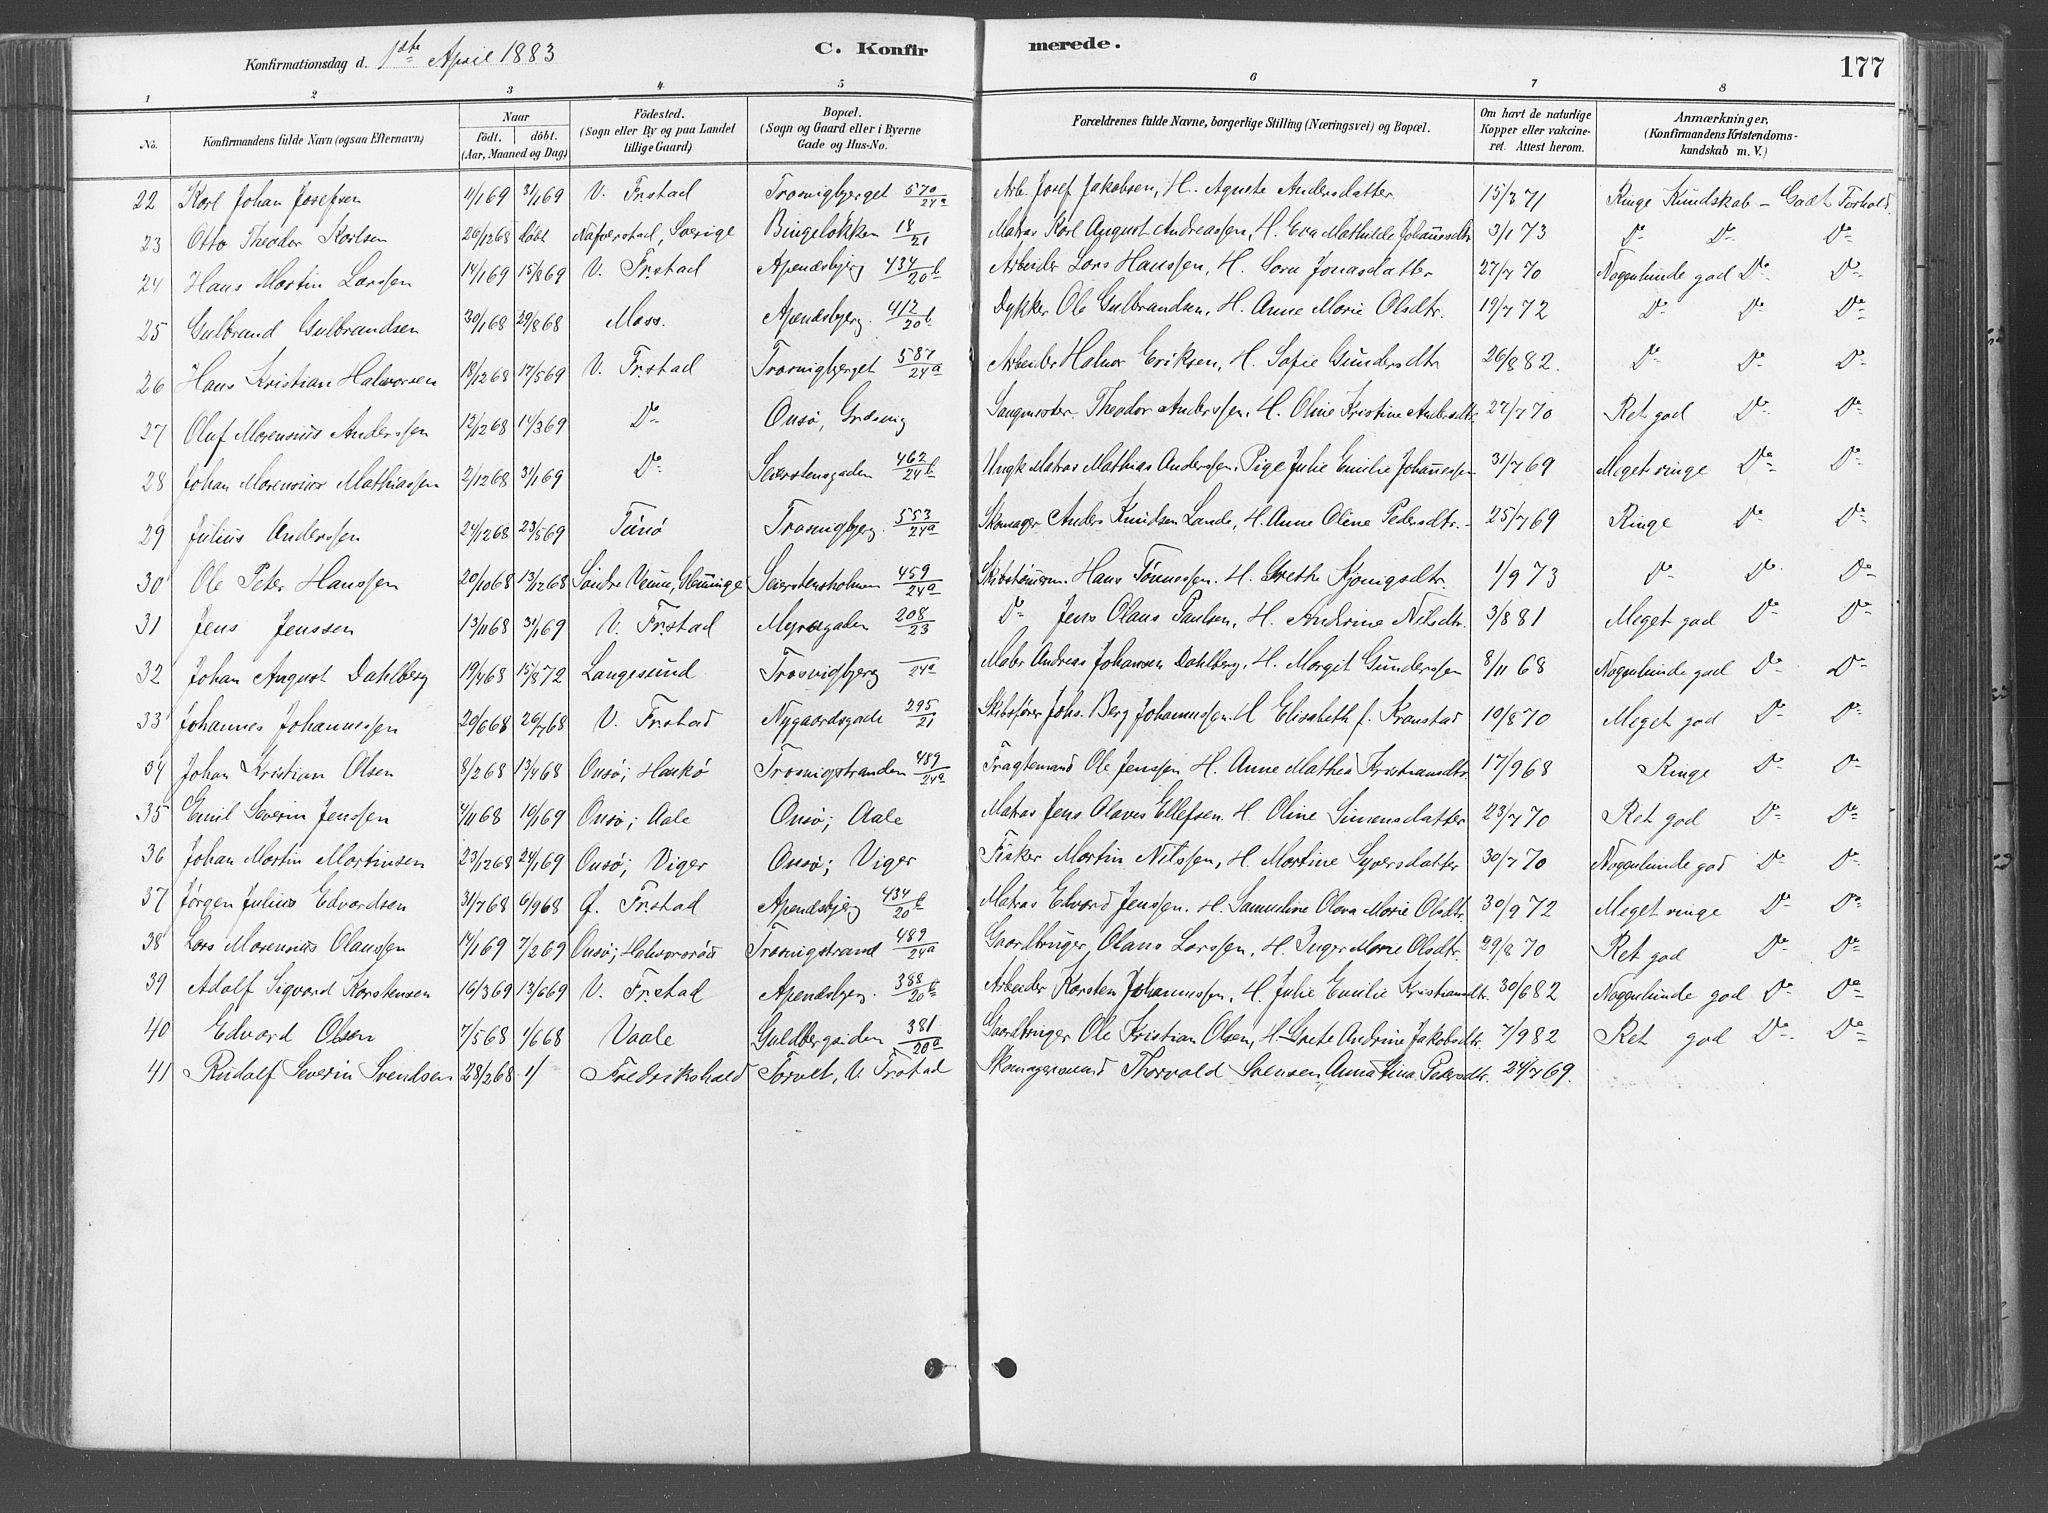 Konfirmationsdag d. 1ste April 1883 C. Konfirmerede. 177
1 2 3 4 5 6 7 8
No. Konfirmandens fulde Navn (ogsaa Efternavn) Naar födt. döbt. (Aar, Maaned og Dag) Födested. (Sogn eller By og paa Landet tillige Gaard) Bopæl. (Sogn og Gaard eller i Byerne Gade og Hus-No. Forældrenes fulde Navne, borgerlige Stilling (Næringsvei) og Bopæl. Om havt de naturlige Kopper eller vakcineret. Attest herom. Anmærkninger, (Konfirmandens Kristendomskundskab m. V.)
22 Karl Johan Josefsen 4/1 69 31/1 69 V. Fr.stad Trosvigbjerget 570/24a Arb. Josef Jakobsen, H. Agnete Andersdatter 15/3 71 Ringe Kundskab – Godt Forhold
23 Otto Theodor Karlsen 26/12 68 döbt Näfverstad, Sverige Bingeløkken 18/21 Matros Karl August Andreassen, H. Eva Mathilde Johannesdtr 3/1 73 Do Do Do
24 Hans Martin Larssen 14/1 69 15/8 69 V. Fr.stad Apenæsbjerg 434/20b Arbeider Lars Hanssen, H. Sara Jonasdatter 27/7 70 Nogenlunde god Do Do
25 Gulbrand Gulbrandsen 30/1 68 29/8 68 Moss. Apenæsbjerg. 412/20b Dykker Ole Gulbrandsen, H. Anne Marie Olsdtr. 19/7 72 Do Do Do
26 Hans Kristian Halvorsen 18/12 68 17/5 69 V. Fr.stad Trosvigbjerget 587/24a Arbeider Halvor Eriksen, H. Sofie Gundersdtr 26/8 82. Do Do Do
27 Oluf Morensius Anderssen 12/12 68 14/3 69 Do Onsø, Græsvig Saugmester Theodor Anderssen, H. Oline Kristine Andersdtr. 27/7 70 Ret god Do Do
28 Johan Morensius Mathiassen 2/12 68 31/1 69 Do Seierstensgaden 462/24b Ungk Matros Mathias Anderssen, Pige Julie Emilie Johannessen 31/7 69 Meget ringe Do Do
29 Julius Anderssen 24/12 68 23/5 69 Tunø Trosvigbjerg. 553/24a Skomager Anders Knudsen Lande, H. Anne Oline Pedersdtr. 25/7 69 Ringe Do Do
30 Ole Peter Hanssen 20/10 68 13/12 68 Söndre Veum, Glemminge Seierstensholmen 459/24a Skibstömrm. Hans Tönnessen. H. Grethe Kjønigsdtr. 1/9 73 Do Do Do
31 Jens Jenssen 13/11 68 31/1 69 V. Fr.stad Myragaden 208/23 Do Jens Olaus Paulsen, H. Andrine Nilsdtr. 3/8 81 Meget god Do Do
32 Johan August Dahlberg 19/4 68 15/8 72 Langesund Trosvigbjerg 24a Maler Andreas Johansen Dahlberg, H. Margit Gunderssen 8/11 68 Nogenlunde god Do Do
33 Johannes Johannessen 20/6 68 26/7 68 V. Fr.stad Nygaardsgade 295/21 Skibsfører Johs. Berg Johannessen. H Elisabeth f. Kranstad 10/8 70 Meget god Do Do
34 Johan Kristian Olsen 8/2 68 13/4 68 Onsø; Hankø Trosvigstranden 489/24a Fragtemand Ole Jenssen H. Anne Mathea Kristiansdtr 17/9 68 Ringe Do Do
35 Emil Severin Jenssen 4/11 68 10/1 69 Onsø; Aale Onsø; Aale Matros Jens Olaves Ellefsen. H. Oline Simensdatter 23/7 70 Ret god Do Do
36 Johan Martin Martinsen 23/12 68 24/1 69 Onsø; Viger Onsø; Viger Fisker Martin Nilssen, H. Martine Syversdatter 30/7 70 Nogenlunde god Do Do
37 Jørgen Julius Edvardsen 31/7 68 6/9 68 Ø. Fr.stad Apenæsbjerg 434/20b Matros Edvard Jenssen. H. Samueline Olava Marie Olsdtr. 30/9 72 Meget ringe Do Do
38 Lars Morennus Olaussen 14/1 69 7/2 69 Onsø; Halvorsrød Trosvigstrand 489/24a Gaardbruger, Olaus Larssen, H. Inger Marie Olsdtr. 29/8 70 Ret god Do Do
39 Adolf Sigvard Karstensen 16/3 69 13/6 69 V. Fr.stad Apenæsbjerg. 388/20b Arbeider Karsten Johannessen, H. Julie Emilie Kristiansdtr. 30/6 82 Nogenlunde god Do Do
40 Edvard Olsen 7/5 68 1/6 68 Vaale Guldbergsiden 381/20a Gaardbruger Ole Kristian Olsen, H. Grete Andrine Jakobsdtr. 7/9 82 Ret god Do Do
41 Rudolf Severin Svendsen 28/2 68 / Fredrikshald Torvet, V. Frstad Skomagersvend Thorvald Svensen, Anna Lina Pedersdtr. 24/7 69.